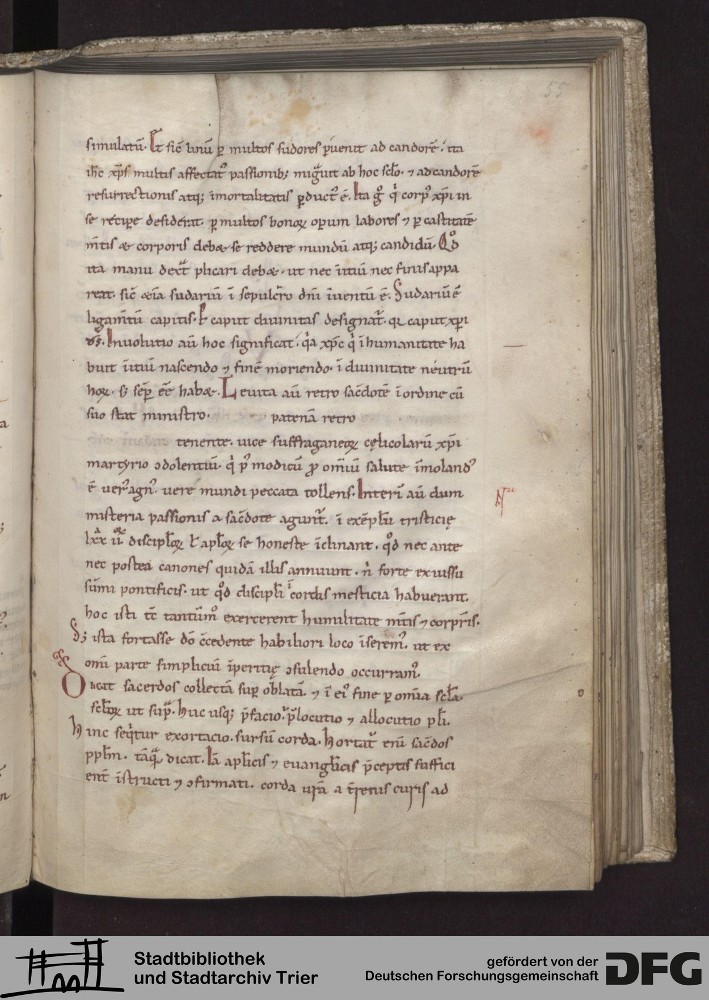 55
simulatū. Et sic̄ linū ꝑ multos sudores puenit ad candorē. ita
ih̄c xp̄s multis affectatꝰ passionibꝫ migͣuit ab hoc sc̄lo. ⁊ ad candorē
resurrectionis atqꝫ īmortalitatis ꝑductꝰ ē. Ita gͦ qͥ corpꝰ xp̄i in
se recipe desiderat. ꝑ multos bonoꝝ opum labores ⁊ ꝑ castitatē
m̄tis & corporis debꝫ se reddere mundū atqꝫ candidū. Qͦd
ita manu plicari debꝫ. ut nec īitiū nec finis appa
reat. sic̄ & sudariū ī sepulcro dn̄i īuentū ē. Sudariū ē
ligam̄tū capitis. Et caput diuinitas designat᷑. qꝛ caput xp̄i
Inuolutio aū hoc significat. qͥa xp̄c qͥ ī humanitate ha
buit īitiū nascendo ⁊ finē moriendo. ī diuinitate neutrū
hoꝝ. sꝫ sēp ēē habꝫ. Leuita aū retro sac̄dotē ī ordine cū
suo stat ministro. patenā retro
tenente. uice suffraganeoꝝ cęlicolarū xp̄i
martyrio ↄdolentiū. qͥ pꝰ modicū ꝓ omīū salute īmolandꝰ
ē uerꝰ agnꝰ. uere mundi peccata tollens. Interī aū dum
misteria passionis a sac̄dote agunt᷑. ī exēplū tristicię
lxx ii discipl̄oꝝ l̄ apl̄oꝝ se honeste īclinant. qͦd nec ante
nec postea canones quidā illis annuunt. n̄ forte ex iussu
sūmi pontificis. ut qͦd discipl̄i cordis mesticia habuerant.
hoc isti tc̄ tantūmͦ exercerent humilitate m̄tis ⁊ corpris.
Sꝫ ista fortasse dō c̄cedente habiliori loco īseremꝰ. ut ex
omī parte simpliciū īperitię ↄsulendo occurramꝰ.
Dicat sacerdos collectā suꝑ oblatā. ⁊ ī eiꝰ fine ꝑ omīa sc̄la
sc̄loꝝ ut suꝑ. Huc usqꝫ p̄facio. p̄locutio ⁊ allocutio pl̄i.
Hinc seqͥtur exortacio. sursū corda. Hortat᷑ enī sac̄dos
ppl̄m. tāqͣ dicat. Iā apl̄icis ⁊ euangl̄icis p̄ceptis suffici
ent̄ īstructi ⁊ ↄfirmati. corda ur̄a a t̄renis curis ad
Stadtbibliothek
und Stadtarchiv Trier
gefördert von der
Deutschen Forschungsgemeinschaft
DFG